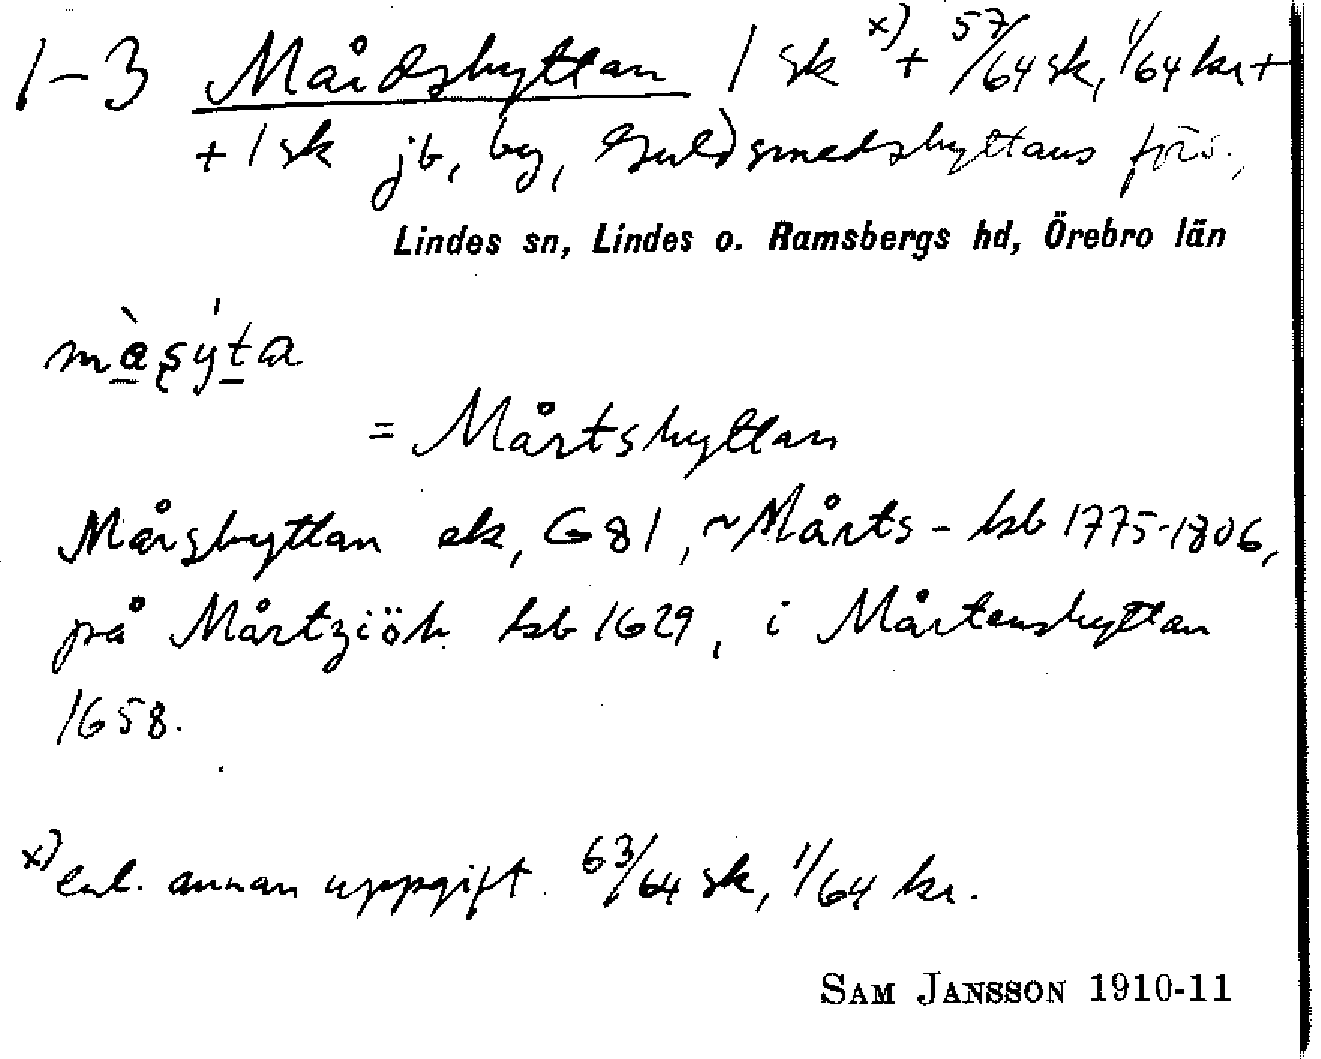 1-3 Mårdshyttan 1 sk x) + 57/64 sk, 1/64 kr +
+ 1 sk jb, by, Guldsmedshyttans förs.,
Lindes sn, Lindes o. Ramsbergs hd, Örebro län
= Mårtshyttan
Mårshyttan ek, G 81, ~ Mårts- hsb 1775-1806,
på Mårtziöh. hsb 1629, i Mårtenshyttan
1658.
x) enl. annan uppgift 63/64 sk, 1/64 kr.
SAM JANSSON 1910-11